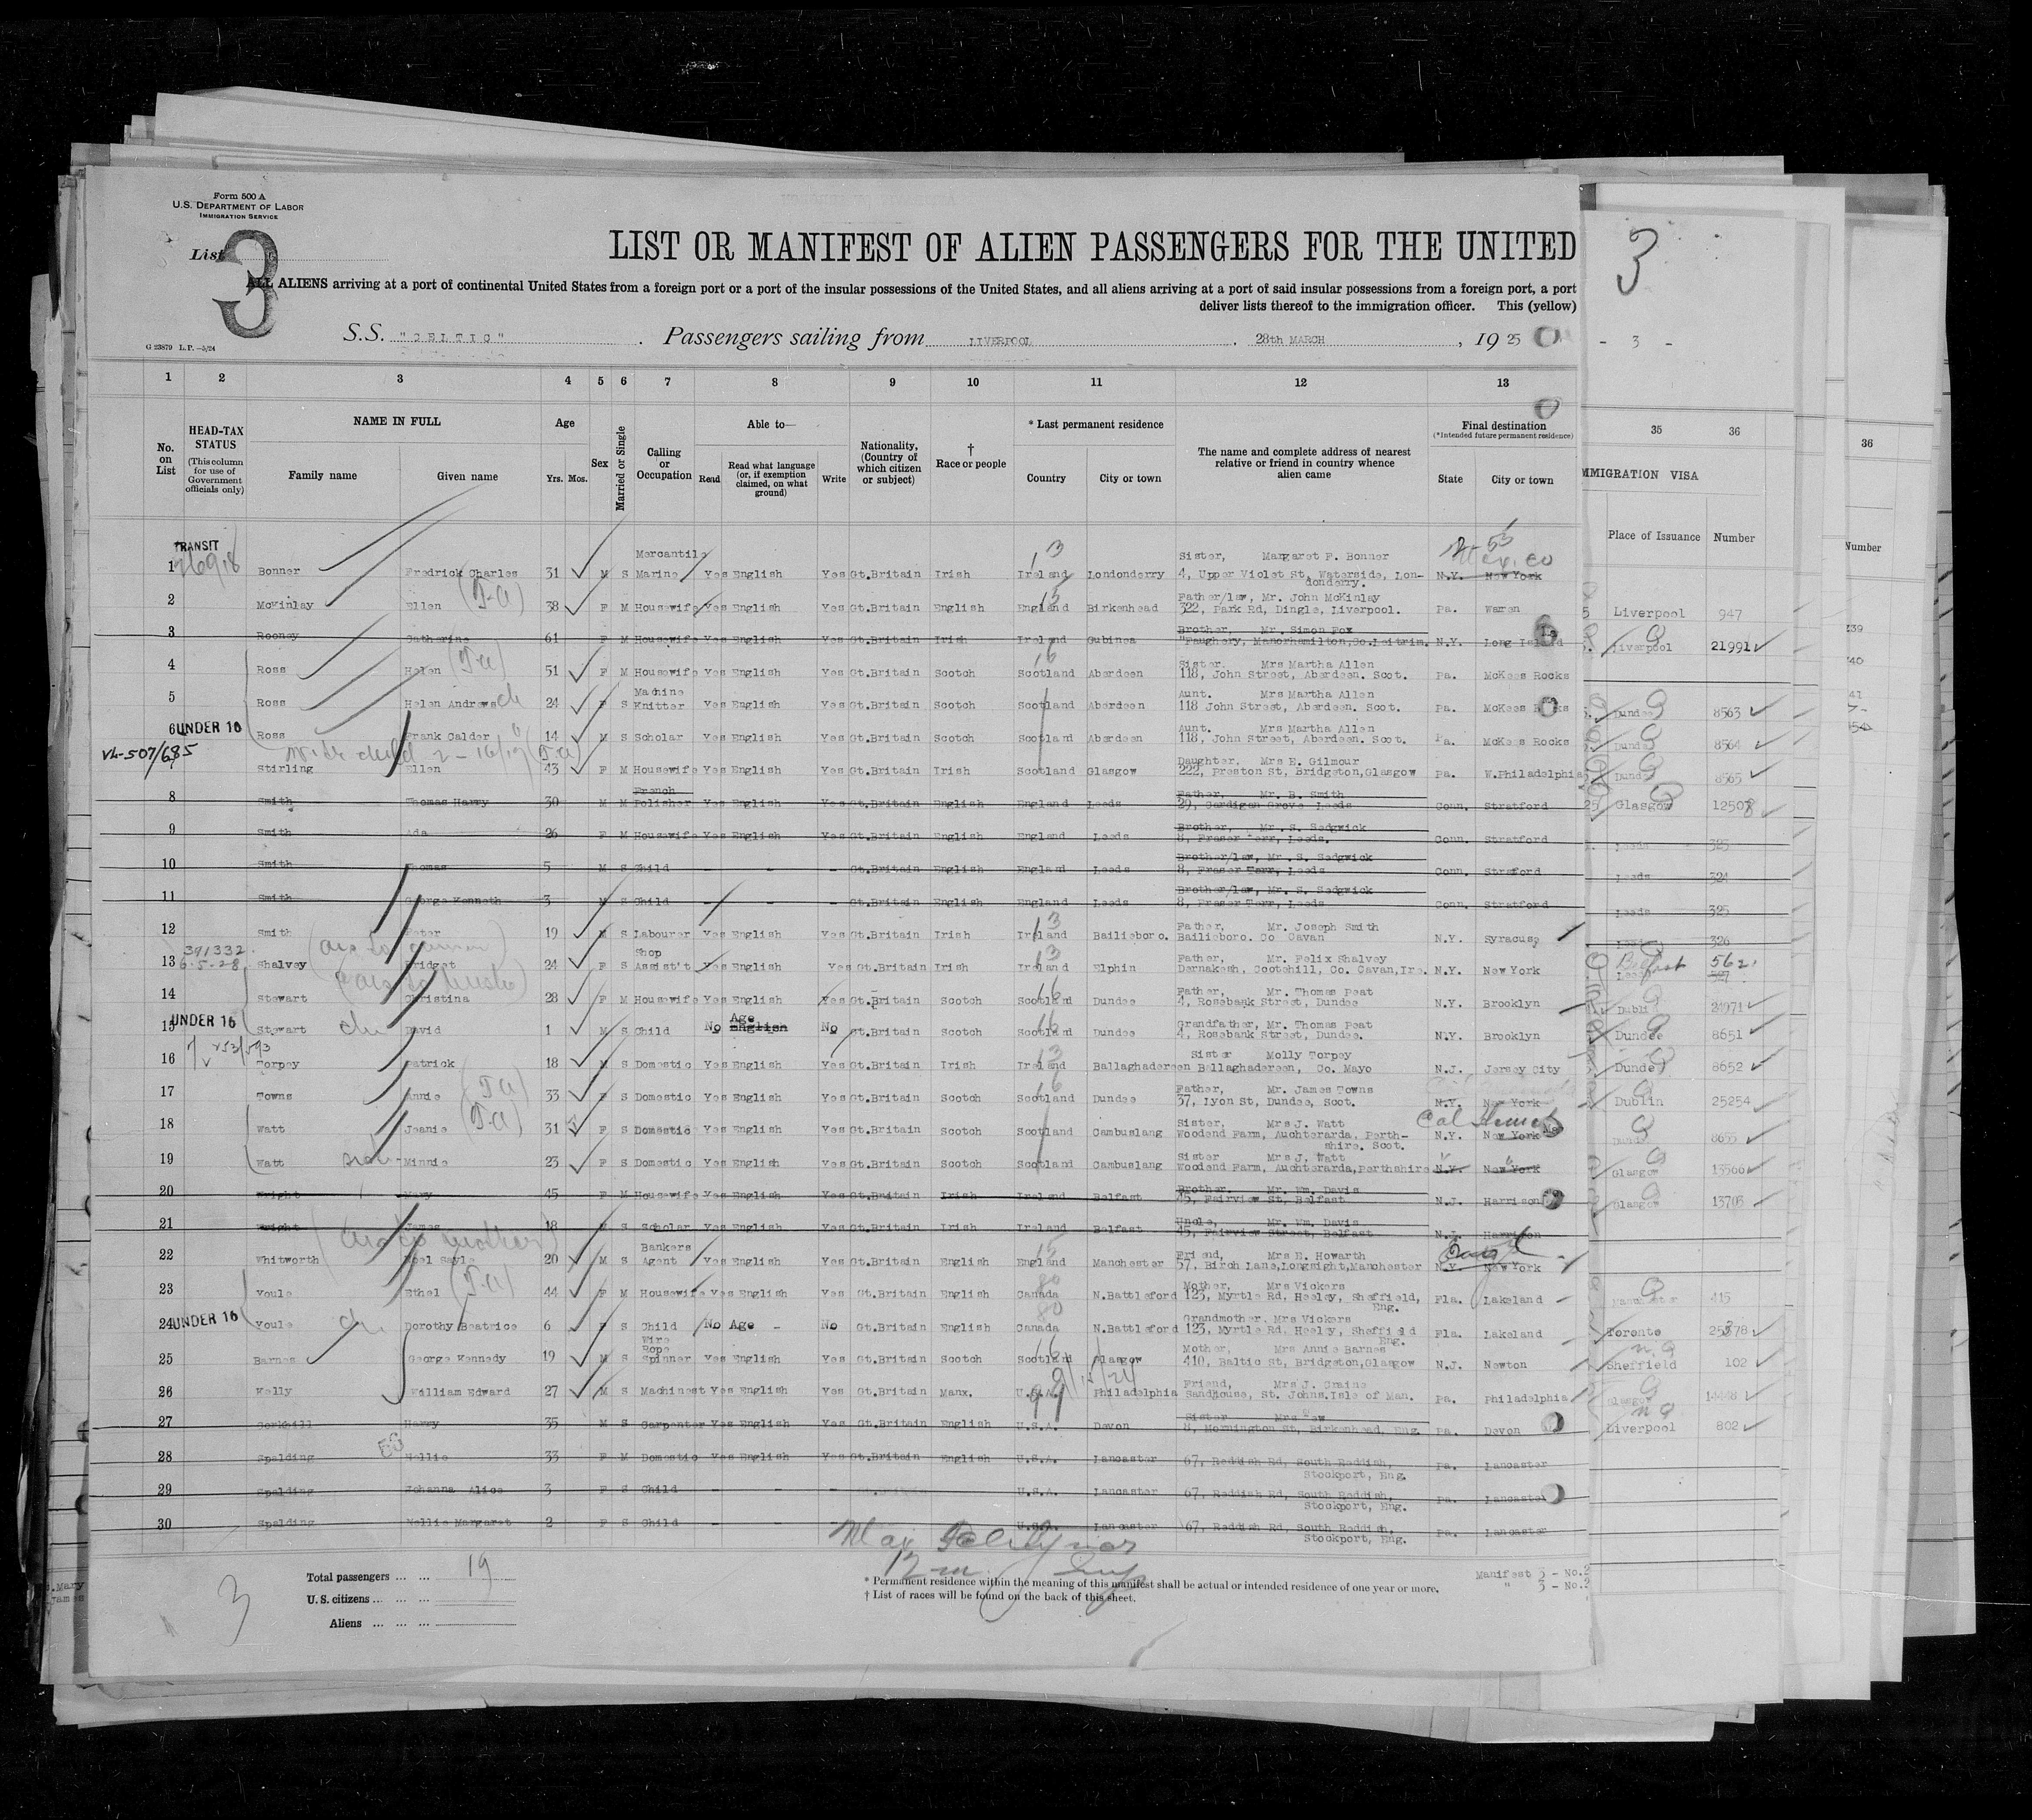 Form 500 A
U.S. DEPARTMENT OF LABOR
IMMIGRATION SERVICE
List 3
LIST OR MANIFEST OF ALIEN PASSENGERS FOR THE UNITED
ALL ALIENS arriving at a port of continental United States from a foreign port or a port of the insular possessions of the United States, and all aliens arriving at a port of said insular possessions from a foreign port, a port
deliver lists thereof to the immigration officer. This (yellow)
G 23879 L.P.—5/24
S.S. "CELTIC" . Passengers sailing from LIVERPOOL , 28th MARCH , 19 25
3
- 3 -
1 2 3 4 5 6 7 8 9 10 11 12 13
35 36
36
No. on List
HEAD-TAX STATUS
(This column for use of Government officials only)
NAME IN FULL
Family name Given name
Age
Yrs. Mos.
Sex
Married or Single
Calling or Occupation
Able to—
Read Read what language (or, if exemption claimed, on what ground) Write
Nationality, (Country of which citizen or subject)
† Race or people
* Last permanent residence
Country City or town
The name and complete address of nearest relative or friend in country whence alien came
Final destination
(*Intended future permanent residence)
State City or town
MMIGRATION VISA
Place of Issuance Number
Number
TRANSIT
Mercantile Sister, Margaret F. Bonner
1 Bonner Fredrick Charles 31 M S Marine Yes English Yes Gt.Britain Irish Ireland Londonderry 4, Upper Violet St, Waterside, Lon- N.Y. New York
donderry.
Father/law, Mr. John McKinlay
2 McKinlay Ellen (T-a) 38 F M Housewife Yes English Yes Gt.Britain English England Birkenhead 322, Park Rd, Dingle, Liverpool. Pa. Warren Liverpool 947
Brother, Mr. Simon Fox
3 Rooney Catherine 61 F M Housewife Yes English Yes Gt.Britain Irish Ireland Gubinea "Faughery, Manorhamilton,Co.Leitrim. N.Y. Long Island Liverpool 21991
Sister. Mrs Martha Allen
4 Ross Helen (T-a) 51 F M Housewife Yes English Yes Gt.Britain Scotch Scotland Aberdeen 118, John Street, Aberdeen. Scot. Pa. McKees Rocks
Machine Aunt. Mrs Martha Allen
5 Ross Helen Andrews ch 24 F S Knitter Yes English Yes Gt.Britain Scotch Scotland Aberdeen 118 John Street, Aberdeen. Scot. Pa. McKees Rocks Dundee 8563
UNDER 16 Aunt. Mrs Martha Allen
6 Ross Frank Calder 14 M S Scholar Yes English Yes Gt.Britain Scotch Scotland Aberdeen 118, John Street, Aberdeen. Scot. Pa. McKees Rocks Dundee 8564
VL-507/685 (T-a) Daughter, Mrs E. Gilmour
7 Stirling Ellen 43 F M Housewife Yes English Yes Gt.Britain Irish Scotland Glasgow 222, Preston St, Bridgeton,Glasgow Pa. W.Philadelphia Dundee 8565
French Father, Mr. B. Smith
8 Smith Thomas Harry 30 M M Polisher Yes English Yes Gt.Britain English England Leeds 29, Cardigan Grove Leeds Conn. Stratford Glasgow 12508
Brother, Mr. S. Sedgwick
9 Smith Ada 26 F M Housewife Yes English Yes Gt.Britain English England Leeds 8, Fraser Terr, Leeds. Conn. Stratford Leeds 323
Brother/law, Mr. S. Sedgwick
10 Smith Thomas 5 M S Child - - - Gt.Britain English England Leeds 8, Fraser Terr, Leeds Conn. Straford Leeds 324
Brother/law, Mr. S. Sedgwick
11 Smith George Kenneth 3 M S Child - - - Gt.Britain English England Leeds 8, Fraser Terr, Leeds Conn. Stratford Leeds 325
Father, Mr. Joseph Smith
12 Smith Peter 19 M S Labourer Yes English Yes Gt.Britain Irish Ireland Bailieboro. Bailieboro. Co Cavan N.Y. Syracuse Leeds 326
391332 Shop Father, Mr. Felix Shalvey
13 6-5-28 Shalvey Bridget 24 F S Assist't Yes English Yes Gt.Britain Irish Ireland Elphin Dernakesh, Cootehill, Co. Cavan,Ire. N.Y. New York Belfast 562
Father, Mr. Thomas Peat
14 Stewart Christina 28 F M Housewife Yes English Yes Gt.Britain Scotch Scotland Dundee 4, Rosebank Street, Dundee N.Y. Brooklyn Dublin 24971
UNDER 16 Age Grandfather, Mr. Thomas Peat
15 Stewart ch David 1 M S Child No English No Gt.Britain Scotch Scotland Dundee 4, Rosebank Street, Dundee. N.Y. Brooklyn Dundee 8651
Sister Molly Torpey
16 Torpey Patrick 18 M S Domestic Yes English Yes Gt.Britain Irish Ireland Ballaghadereen Ballaghadereen, Co. Mayo N.J. Jersey City Dundee 8652
Father, Mr. James Towns
17 Towns Annie (T-a) 33 F S Domestic Yes English Yes Gt.Britain Scotch Scotland Dundee 37, Lyon St, Dundee, Scot. N.Y. New York Dublin 25254
Sister, Mrs J. Watt
18 Watt Jeanie (T-a) 31 F S Domestic Yes English Yes Gt.Britain Scotch Scotland Cambuslang Woodend Farm, Auchterarda, Perth- N.Y. New York Dundee 8655
shire. Scot.
Sister Mrs J. Watt
19 Watt Minnie 23 F S Domestic Yes English Yes Gt.Britain Scotch Scotland Cambuslang Woodend Farm, Auchterarda,Perthshire N.Y. New York Glasgow 13566
Brother. Mr. Wm. Davis
20 Wright Mary 45 F M Housewife Yes English Yes Gt.Britain Irish Ireland Belfast 45, Fairview St, Belfast N.J. Harrison Glasgow 13703
Uncle, Mr. Wm. Davis
21 Wright James 18 M S Scholar Yes English Yes Gt.Britain Irish Ireland Belfast 45, Fairview Street, Belfast N.J. Harrison
Bankers Friend, Mrs E. Howarth
22 Whitworth Noel Sayle 20 M S Agent Yes English Yes Gt.Britain English England Manchester 57, Birch Lane,Longsight,Manchester N.Y. New York
Mother, Mrs Vickers
23 Youle Ethel (T-a) 44 F M Housewife Yes English Yes Gt.Britain English Canada N.Battleford 123, Myrtle Rd, Heeley, Sheffield, Fla. Lakeland Manchester 415
Eng.
UNDER 16 Grandmother, Mrs Vickers
24 Youle ch. Dorothy Beatrice 6 F S Child No Age - No Gt.Britain English Canada N.Battleford 123, Myrtle Rd, Heeley, Sheffield Fla. Lakeland Toronto 25378
Eng.
Wire Rope Mother, Mrs Annie Barnes
25 Barnes George Kennedy 19 M S Spinner Yes English Yes Gt.Britain Scotch Scotland Glasgow 410, Baltic St, Bridgeton,Glasgow N.J. Newton Sheffield 102
Friend, Mrs J. Craine
26 Kelly William Edward 27 M S Machinest Yes English Yes Gt.Britain Manx. U.S.A. Philadelphia Sandhouse, St. Johns.Isle of Man. Pa. Philadelphia Glasgow 14448
Sister
27 Corkhill Harry 35 M S Carpenter Yes English Yes Gt.Britain English U.S.A. Devon 8, Mornington St, Birkenhead, Eng. Pa. Devon Liverpool 802
28 Spalding Nellie 33 F M Domestic Yes English Yes Gt.Britain English U.S.A. Lancaster 67, Reddish Rd, South Reddish, Pa. Lancaster
Stockport, Eng.
29 Spalding Johanna Alice 3 F S Child - - - U.S.A. Lancaster 67, Reddish Rd, South Reddish, Pa. Lancaster
Stockport, Eng.
30 Spalding Nellie Margaret 2 F S Child - - - U.S.A. Lancaster 67, Reddish Rd, South Reddish, Pa. Lancaster
Stockport, Eng.
Total passengers ... ... 19
U.S. citizens ... ... ...
Aliens ... ... ...
3
* Permanent residence within the meaning of this manifest shall be actual or intended residence of one year or more.
† List of races will be found on the back of this sheet.
Manifest 3 - No.2
" 3 - No.2